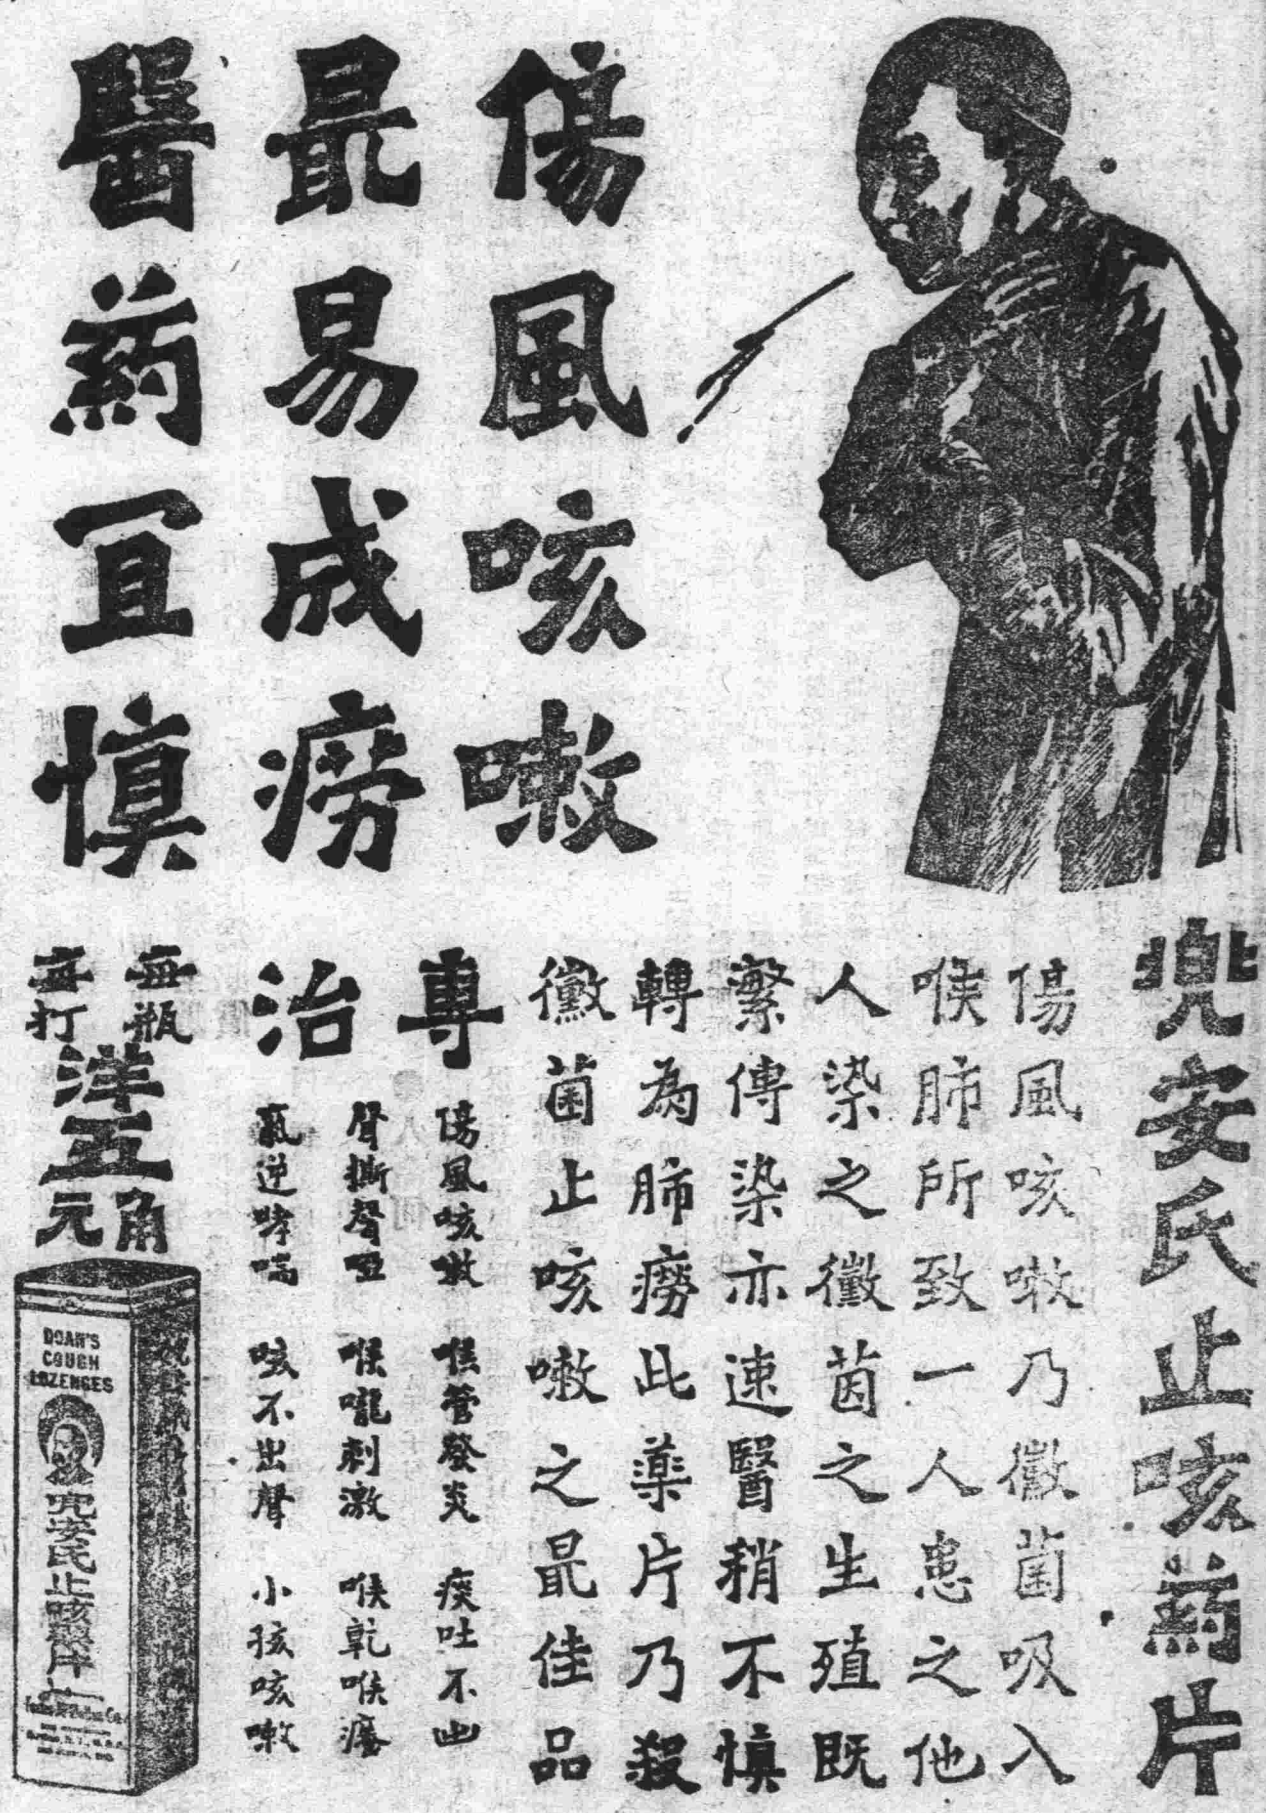 傷風咳嗽
最易成癆
醫葯冝慎
兜安氏止咳葯片
傷風咳嗽乃黴菌吸入
喉肺所致一人患之他
人染之黴菌之生殖既
繁傳染亦速醫稍不慎
轉為肺癆此藥片乃殺
黴菌止咳嗽之最佳品
專治
傷風咳嗽 喉管發炎 痰吐不出
聲撕聲啞 喉嚨刺激 喉乾喉癢
氣逆哮喘 咳不出聲 小孩咳嗽
每瓶洋五角
每打洋五元
DOAN'S
COUGH
LOZENGES
兜安氏止咳藥片